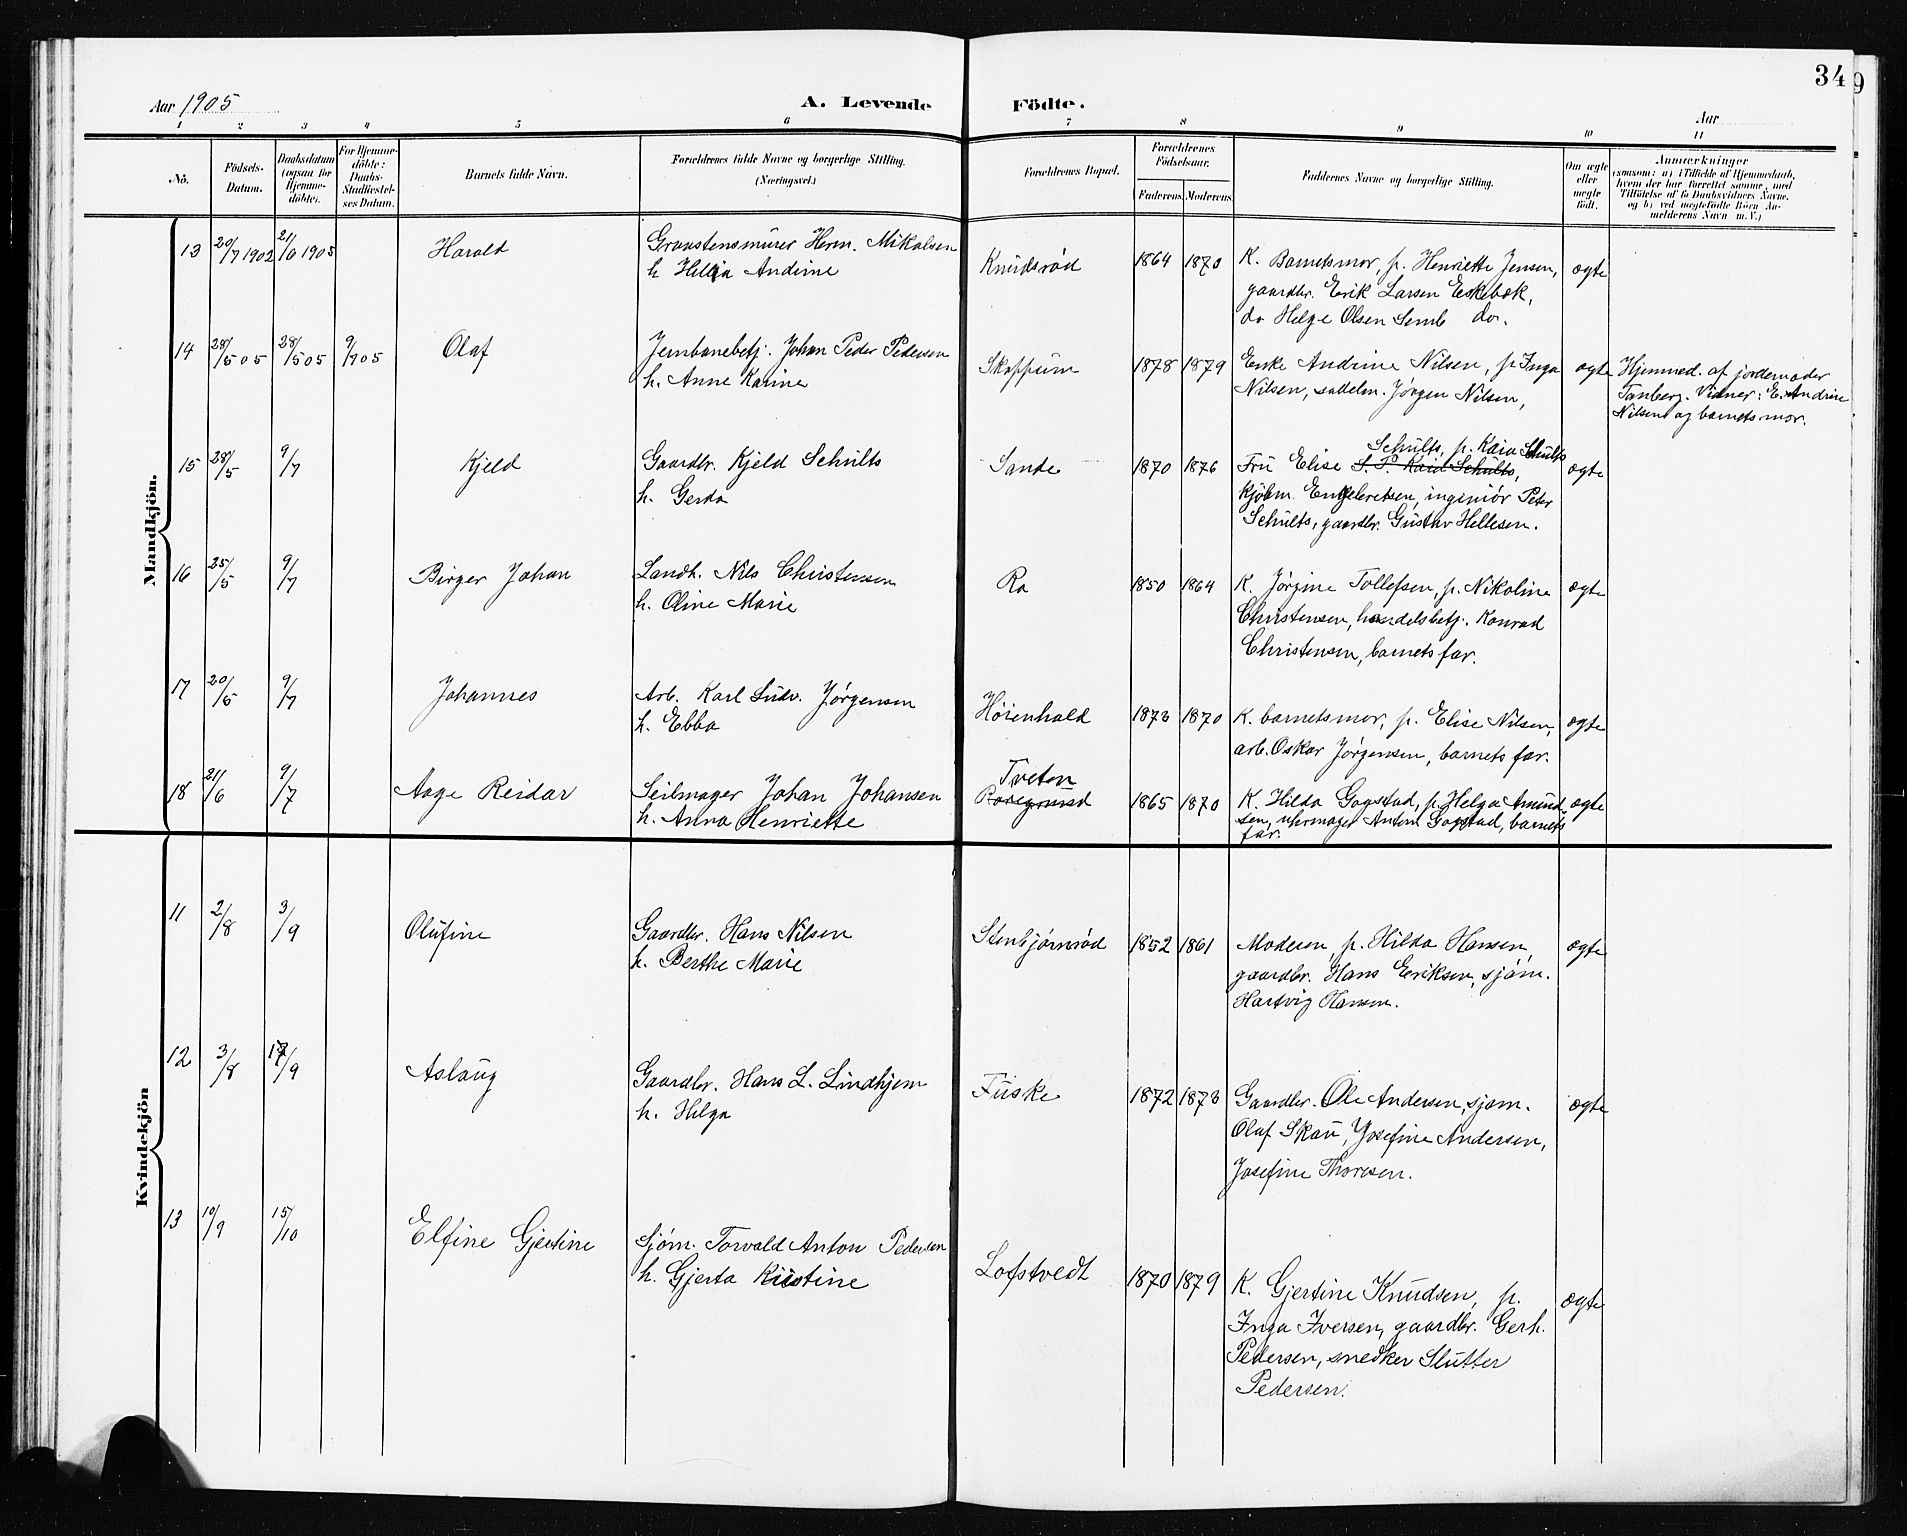 34
9
Aar 1905
A. Levende Födte.
Aar
1 2 3 4 5 6 7 8 9 10 11
Nò.
Födsels-
Datum.
Daabsdatum
(ogsaa for
Hjemme-
döbte).
For Hjemme-
döbte:
Daabs-
Stadfæstel-
ses Datum.
Barnets fulde Navn.
Forældrenes fulde Navne og borgerlige Stilling.
(Næringsvei.)
Forældrenes Bopæl.
Forældrenes
Födselsaar.
Faderens Moderens
Faddernes Navne og borgerlige Stilling.
Om ægte
eller
uægte
födt.
Anmærkninger
(saasom: a) i Tilfælde af Hjemmedaab,
hvem der har forrettet samme, med
Tilföielse af to Daabsvidners Navne.
og b) ved uægtefödte Börn An-
melderens Navn m. V.)
Mandkjön.
13 20/7 1902 21/6 1905 Harald
Graastensmurer Herm. Mikalsen
h. Helga Andrine
Knudsrød 1864 1870
K. Barnets mor, p. Henriette Jensen,
gaardbr. Erik Larsen Eskebæk,
do Helge Olsen Semb do.
ægte
14 28/5 05 28/5 05 9/7 05 Olaf
Jernbanebetj. Johan Peder Pedersen
h. Anne Karine
Skoppum 1878 1879
Enke Andrine Nilsen, p Inga
Nilsen, sadelm. Jørgen Nilsen,
ægte
Hjemmed. af jordemoder
Tanberg. Vidner: E. Andrine
Nilsen og barnets mor.
15 28/5 9/7 Kjeld
Gaardbr. Kjeld Schults
h. Gerda
Sande 1870 1876
Schults, p. Kaia Schults
Fru Elise
kjøbm. Engebretsen, ingeniør Peter
Schults, gaardbr. Gustav Hellesen.
ægte
16 25/5 9/7 Birger Johan
Landh. Nils Christensen
h. Oline Marie
Ra 1850 1864
K. Jørgine Tollefsen, p. Nikoline
Christensen, handelsbetj. Konrad
Christensen, barnets far.
ægte
17 20/5 9/7 Johannes
Arb. Karl Ludv. Jørgensen
h. Ebba
Høienhald 1873 1870
K. barnets mor, p. Elise Nilsen,
arb. Oskar Jørgensen, barnets far.
ægte
18 21/6 9/7 Aage Reidar
Seilmager Johan Johansen
h. Anna Henriette
Tveten
1865 1870
K. Hilda Gogstad, p. Helga Amund-
sen, uhrmager Anton Gogstad, barnets
far.
ægte
Kvindekjön
11 2/8 3/9 Olufine
Gaardbr. Hans Nilsen
h. Berthe Marie
Stenbjørnrød 1852 1861
Moderen, p. Hilda Hansen,
gaardbr. Hans Eriksen, sjøm.
Hartvig Hansen.
ægte
12 3/8 17/9 Aslaug
Gaardbr. Hans L. Lindhjem
h. Helga
Fuske 1872 1873
Gaardbr. Ole Andersen, sjøm.
Olaf Skau, Josefine Andersen,
Josefine Thoresen.
ægte
13 10/9 15/10 Elfine Gjertine
Sjøm. Torvald Anton Pedersen
h. Gjerta Kristine
Lofstvedt 1870 1879
K. Gjertine Knudsen, p.
Inga Iversen, gaardbr. Gerh.
Pedersen, snedker Slutter
Pedersen.
ægte